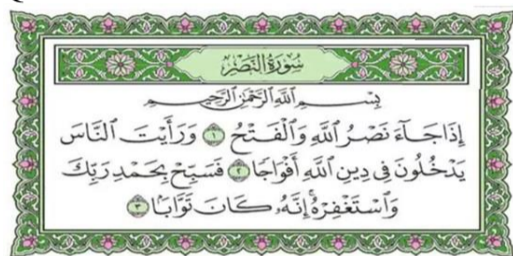 سُورَةُ النَّصْرِ
بِسْمِ اللَّهِ الرَّحْمَٰنِ الرَّحِيمِ
إِذَا جَاءَ نَصْرُ اللَّهِ وَالْفَتْحُ ١ وَرَأَيْتَ النَّاسَ
يَدْخُلُونَ فِي دِينِ اللَّهِ أَفْوَاجًا ٢ فَسَبِّحْ بِحَمْدِ رَبِّكَ
وَاسْتَغْفِرْهُ إِنَّهُ كَانَ تَوَّابًا ٣